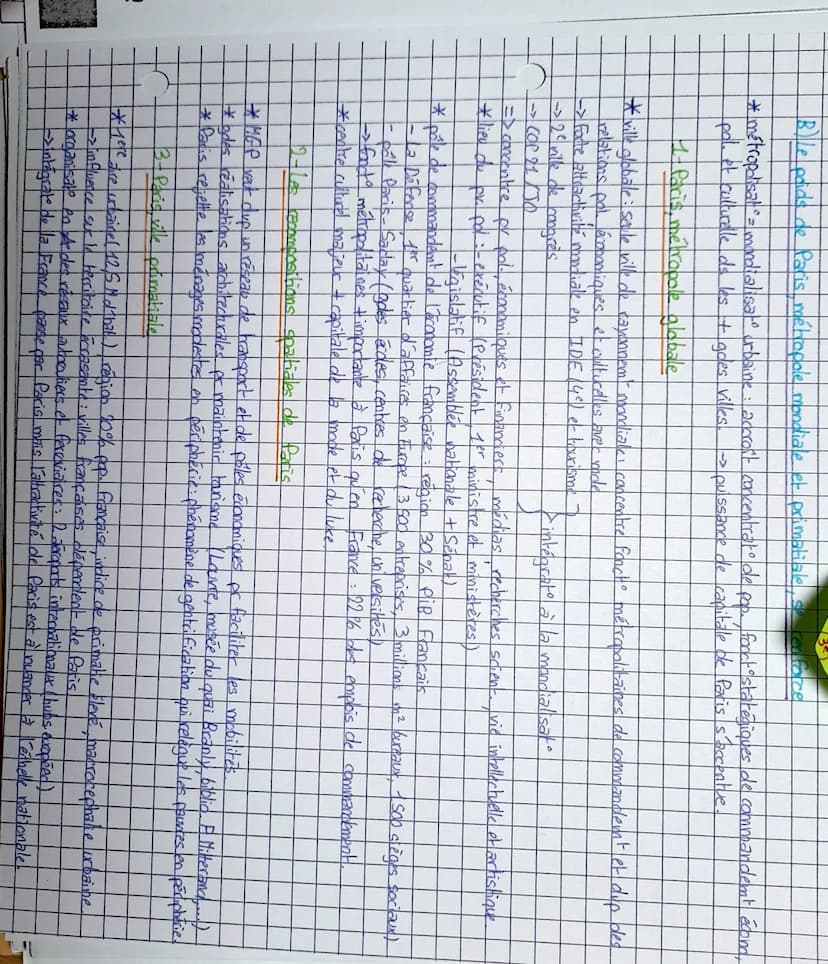 B) Le poids de Paris, métropole mondiale et primatiale, se renforce
* métropolisat° = mondialisat° urbaine : accroît concentrat° de pop, fonct° stratégiques de commandemt écono,
pol. et culturelle ds les + gdes villes. → puissance de capitale de Paris s'accentue.
1 - Paris, métropole globale
* ville globale : seule ville de rayonnemt mondiale : concentre fonct° métropolitaines de commandemt et dvp des
relations pol. économiques et culturelles avec mde
→ Forte attractivité mondiale en IDE (4e) et tourisme
→ 2e ville de congrès
→ COP 21 / JO
} intégrat° à la mondialisat°
=> concentre pv pol., économiques et financiers, médias, recherches scient., vie intellectuelle et artistique
* lieu du pv. pol : - exécutif (Président, 1er ministre et ministères)
- législatif (Assemblée nationale + Sénat)
* pôle de commandemt de l'économie française : région 30% PIB français
- La Défense, 1er quartier d'affaires en Europe (3 500 entreprises, 3 millions m² bureaux, 1 500 sièges sociaux)
- pôle Paris-Saclay (gdes écoles, centres de recherche, universités)
→ fonct° métropolitaines + importante à Paris qu'en France : 22% des emplois de commandement.
* centre culturel majeur + capitale de la mode et du luxe.
2 - Les recompositions spatiales de Paris
* MGP veut dvp un réseau de transport et de pôles économiques pr faciliter les mobilités.
* gdes réalisations architecturales pr maintenir tourisme (Louvre, musée du quai Branly, biblio. F. Mitterand,...)
* Paris rejette les ménages modestes en périphérie : phénomène de gentrification qui relègue les pauvres en périphérie.
3 - Paris, ville primatiale
* 1ère aire urbaine (12,5 M d'hab), région 20% pop. française, indice de primatie élevé, macrocéphalie urbaine.
→ influence sur le territoire écrasante : villes françaises dépendent de Paris
* organisat° en des réseaux autoroutiers et ferroviaires : 2 aéroports internationaux (hubs européen)
→ intégrat° de la France passe par Paris mais l'attractivité de Paris est à nuancer à l'échelle nationale.